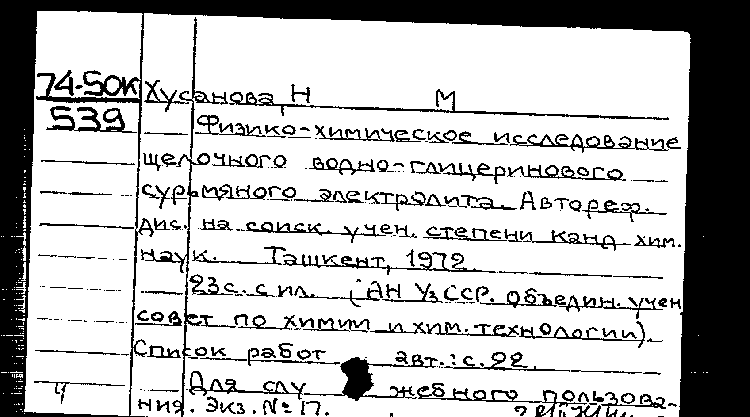 74-5ОК Хусанова, Н М
539 Физико-химическое исследование
щелочного водно-глицеринового
сурьмяного электролита. Автореф.
дис. на соиск. учен. степени канд хим.
наук. Ташкент, 1972
23с. с ил. (АН УзССР. Объедин. учен
совет по химии и хим. технологии).
Список работ авт.: с. 22.
Для служебного пользова-
ния. Экз. № 17.
ч